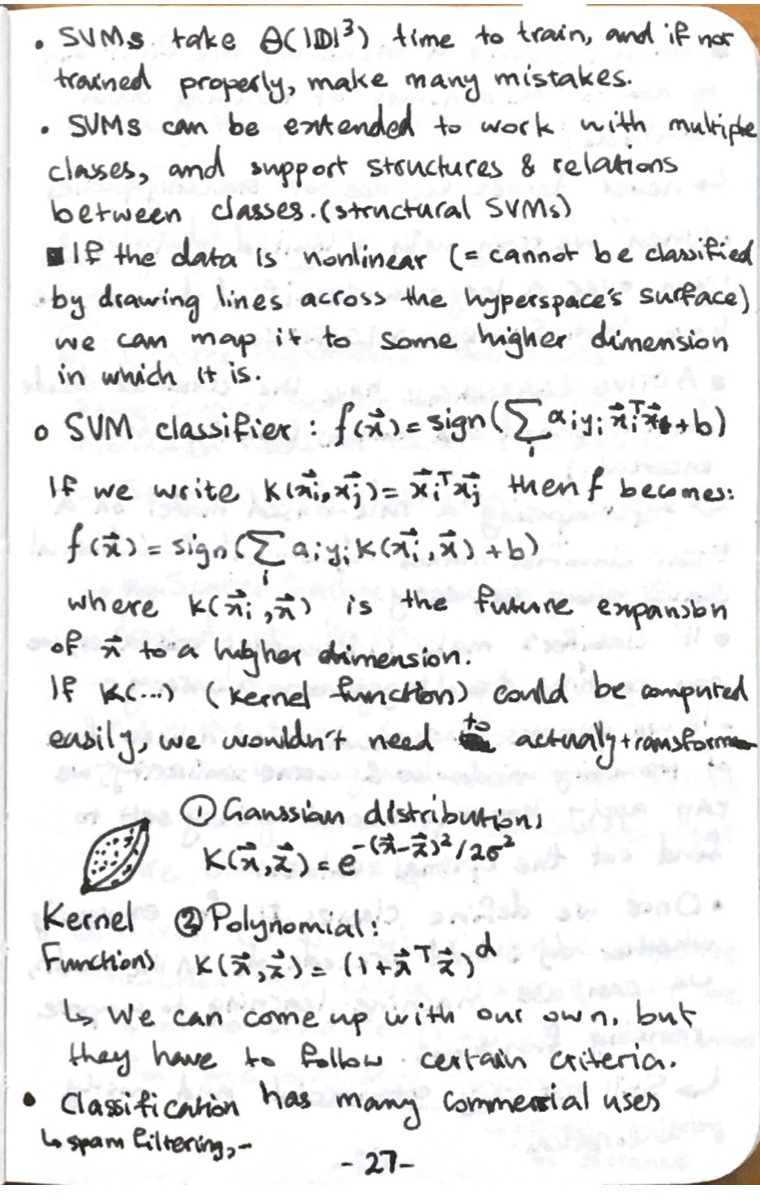 • SVMs take Θ(|D|³) time to train, and if not
trained properly, make many mistakes.
• SVMs can be extended to work with multiple
classes, and support structures & relations
between classes. (structural SVMs)
■ If the data is nonlinear (= cannot be classified
by drawing lines across the hyperspace's surface)
we can map it to some higher dimension
in which it is.
o SVM classifier : f(x⃗) = sign(∑ᵢ aᵢyᵢ x⃗ᵢᵀx⃗ + b)
If we write K(x⃗ᵢ, x⃗ⱼ) = x⃗ᵢᵀx⃗ⱼ then f becomes:
f(x⃗) = sign(∑ᵢ aᵢyᵢK(x⃗ᵢ, x⃗) + b)
where K(x⃗ᵢ, x⃗) is the future expansion
of x⃗ to a higher dimension.
If K(...) (kernel function) could be computed
easily, we wouldn't need to actually transform
① Gaussian distribution:
K(x⃗, z⃗) = e^(-(x⃗-z⃗)²/2σ²)
Kernel ② Polynomial:
Functions K(x⃗, z⃗) = (1+x⃗ᵀz⃗)ᵈ
↳ We can come up with our own, but
they have to follow certain criteria.
• Classification has many commercial uses
↳ spam filtering, –
- 27 -